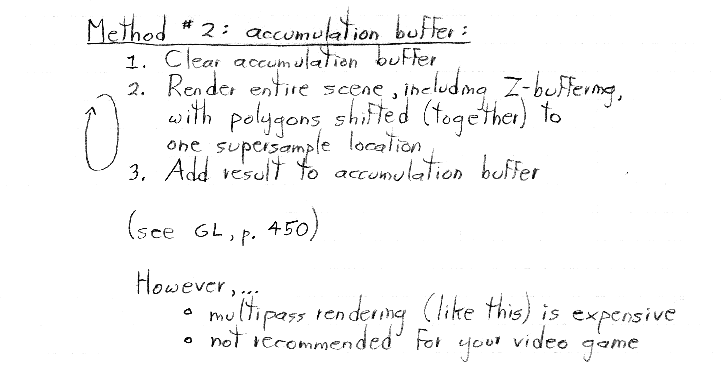 Method #2: accumulation buffer:
1. Clear accumulation buffer
2. Render entire scene, including Z-buffering,
with polygons shifted (together) to
one supersample location
3. Add result to accumulation buffer
(see GL, p. 450)
However,...
• multipass rendering (like this) is expensive
• not recommended for your video game